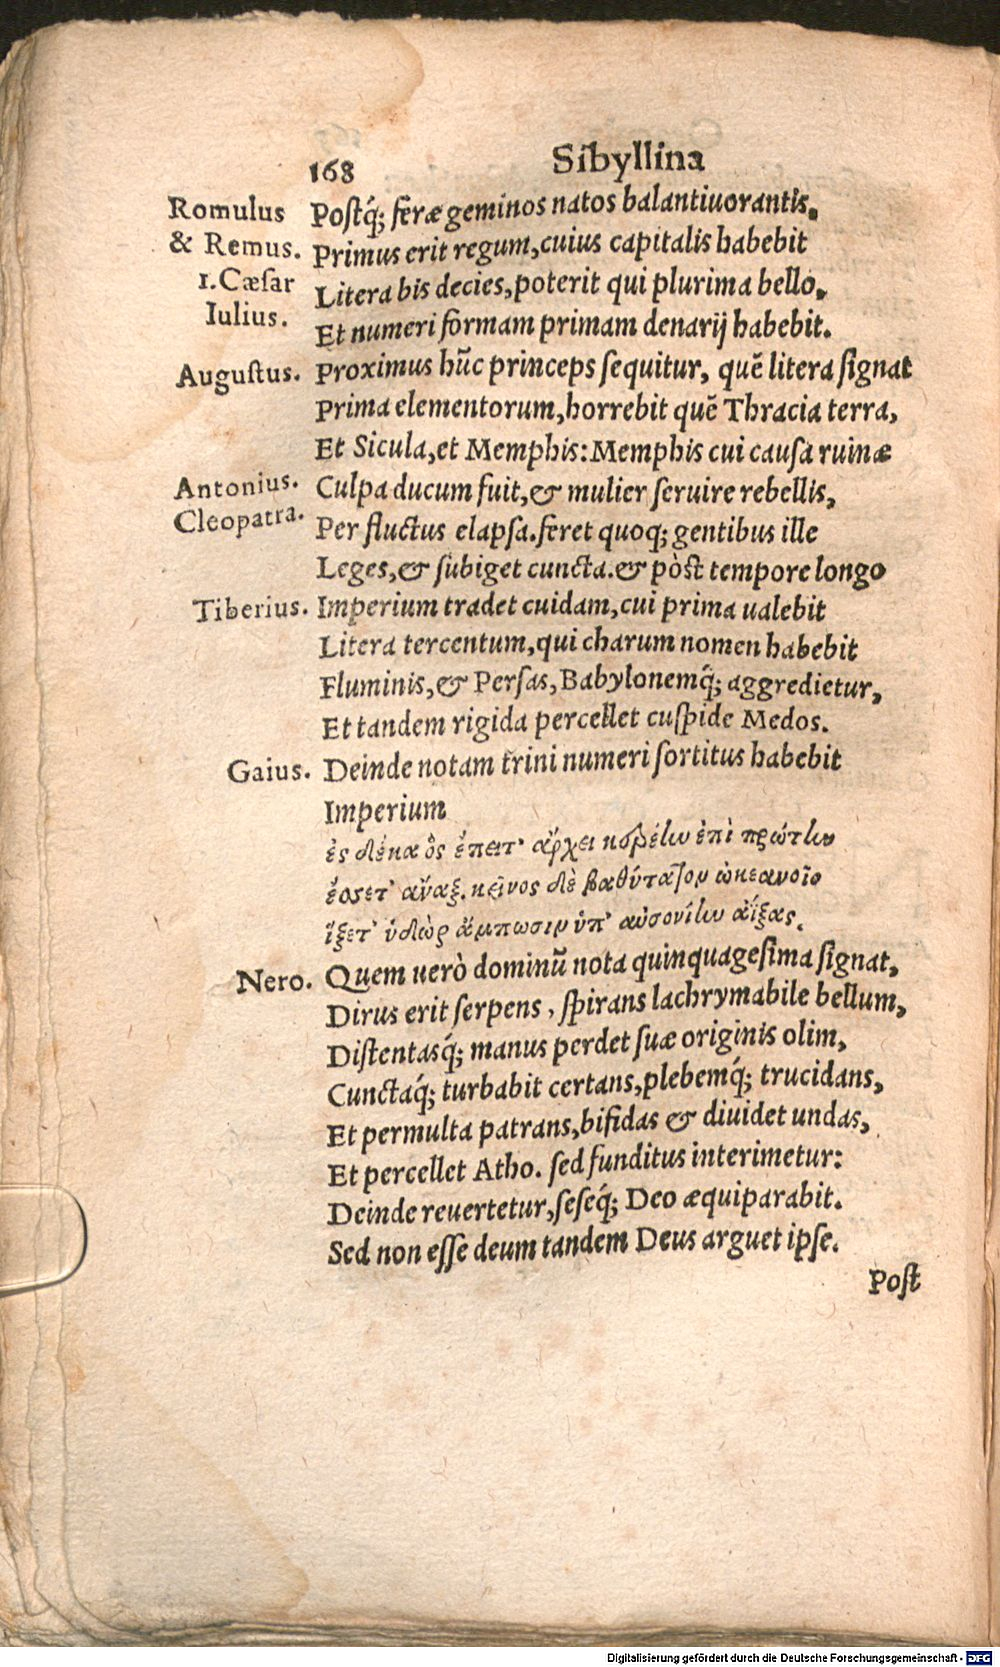 168 Sibyllina
Romulus Postq́; feræ geminos natos balantiuorantis,
& Remus. Primus erit regum, cuius capitalis habebit
1. Cæſar Litera bis decies, poterit qui plurima bello,
Iulius. Et numeri formam primam denarij habebit.
Auguſtus. Proximus hūc princeps ſequitur, quē litera ſignat
Prima elementorum, horrebit quē Thracia terra,
Et Sicula, et Memphis: Memphis cui cauſa ruinæ
Antonius. Culpa ducum fuit, & mulier ſeruire rebellis,
Cleopatra. Per fluctus elapſa. feret quoq; gentibus ille
Leges, & ſubiget cuncta. & pòſt tempore longo
Tiberius. Imperium tradet cuidam, cui prima ualebit
Litera tercentum, qui charum nomen habebit
Fluminis, & Perſas, Babylonemq́; aggredietur,
Et tandem rigida percellet cuſpide Medos.
Gaius. Deinde notam trini numeri ſortitus habebit
Imperium
ἐς δέκα ὃς ἔπειτ᾽ ἄρχει κορέην ἐπὶ πρώτην
ἔοςετ᾽ ἄναξ. κεῖνος δὲ βαθύτατον ὠκεανοῖο
ἵξετ᾽ ὑδὼρ ἄμπωσιν ὑπ᾽ αὐσονίην ἀΐξας.
Nero. Quem uerò dominū nota quinquageſima ſignat,
Dirus erit ſerpens, ſpirans lachrymabile bellum,
Diſtentasq́; manus perdet ſuæ originis olim,
Cunctaq́; turbabit certans, plebemq́; trucidans,
Et permulta patrans, bifidas & diuidet undas,
Et percellet Atho. ſed funditus interimetur:
Deinde reuertetur, ſeſeq́; Deo æquiparabit.
Sed non eſſe deum tandem Deus arguet ipſe.
Poſt
Digitalisierung gefördert durch die Deutsche Forschungsgemeinschaft - DFG